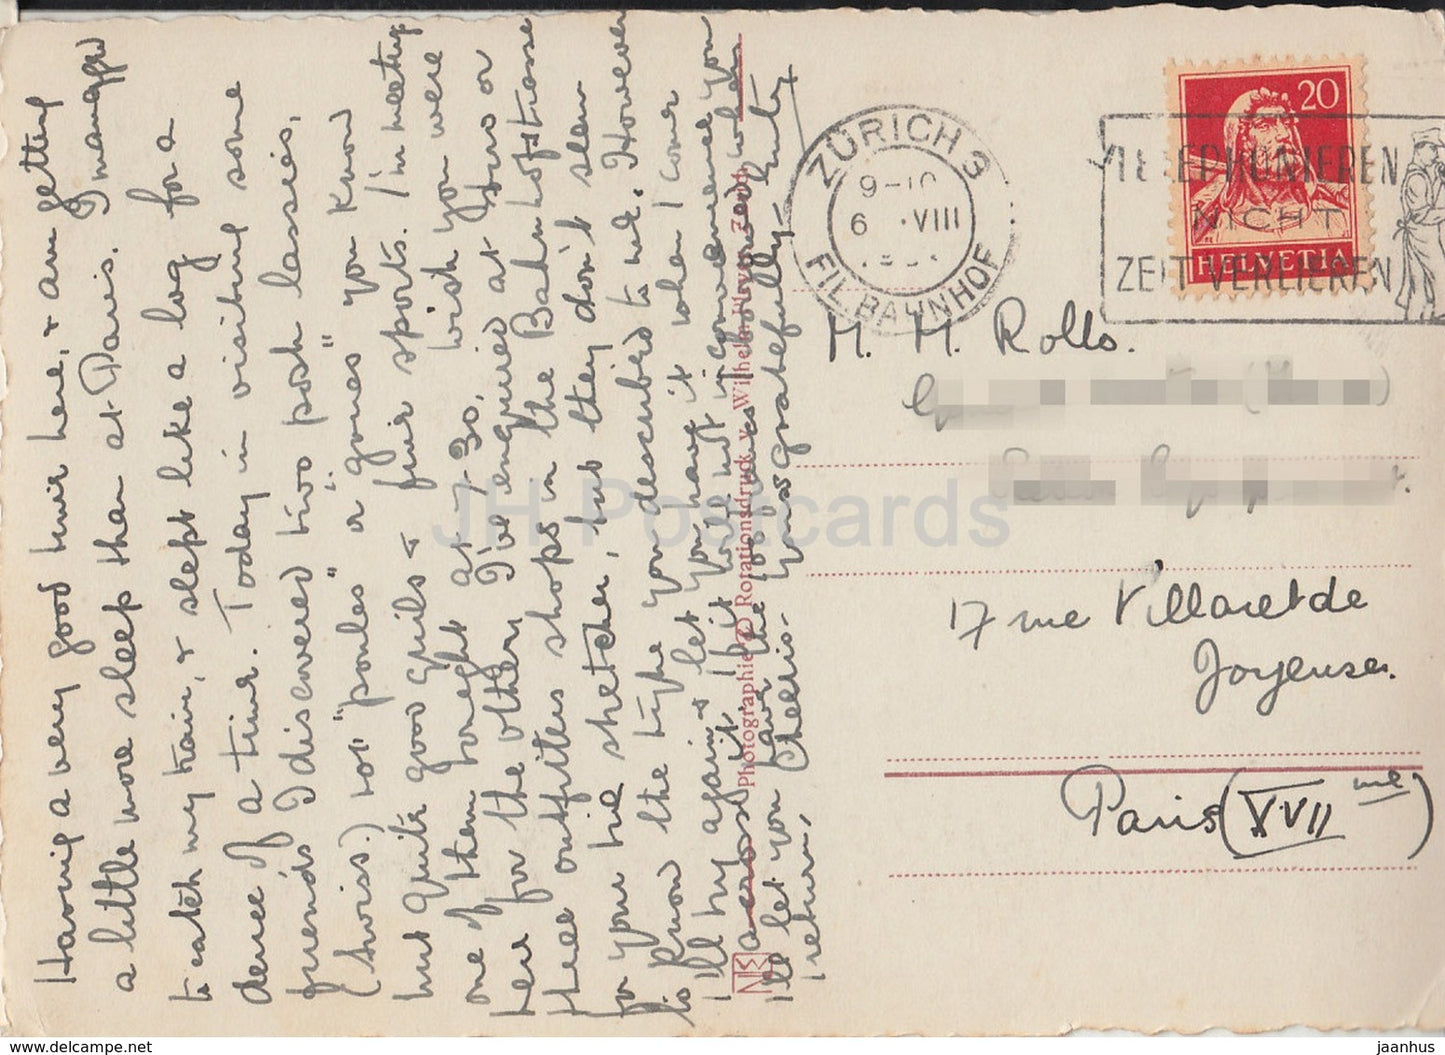 Having a very good time here, & am getting
a little more sleep than at Paris. I managed
to catch my train, & slept like a log for a
deuce of a time. Today in visiting some
friends I discovered two posh lassies,
(Swiss.) not "poules" or "gones" you know
but quite good girls & fine sports. I'm meeting
one of them tonight at 7.30, wish you were
here for the other. I've enquired at two or
three outfitters shops in the Bahnhofstrasse
for your tie stretcher, but they don't seem
to know the type you described to me. However
I'll try again & let you have it when I come
across it. I hit will not inconvenience you
I'll let you have the 100 francs I borrowed when
I return, Cheerio - yours gratefully -
Photographie © Rotationsdruck v. Wilhelm Pleyer, Zürich
ZÜRICH 3
9-10
6 VIII
FIL. BAHNHOF
TELEPHONIEREN
NICHT
ZEIT VERLIEREN
20
HELVETIA
M. M. Rolls.
17 rue Villaret de
Joyeuse.
Paris (XVII me)
JH Postcards
www.delcampe.net
jaanhus